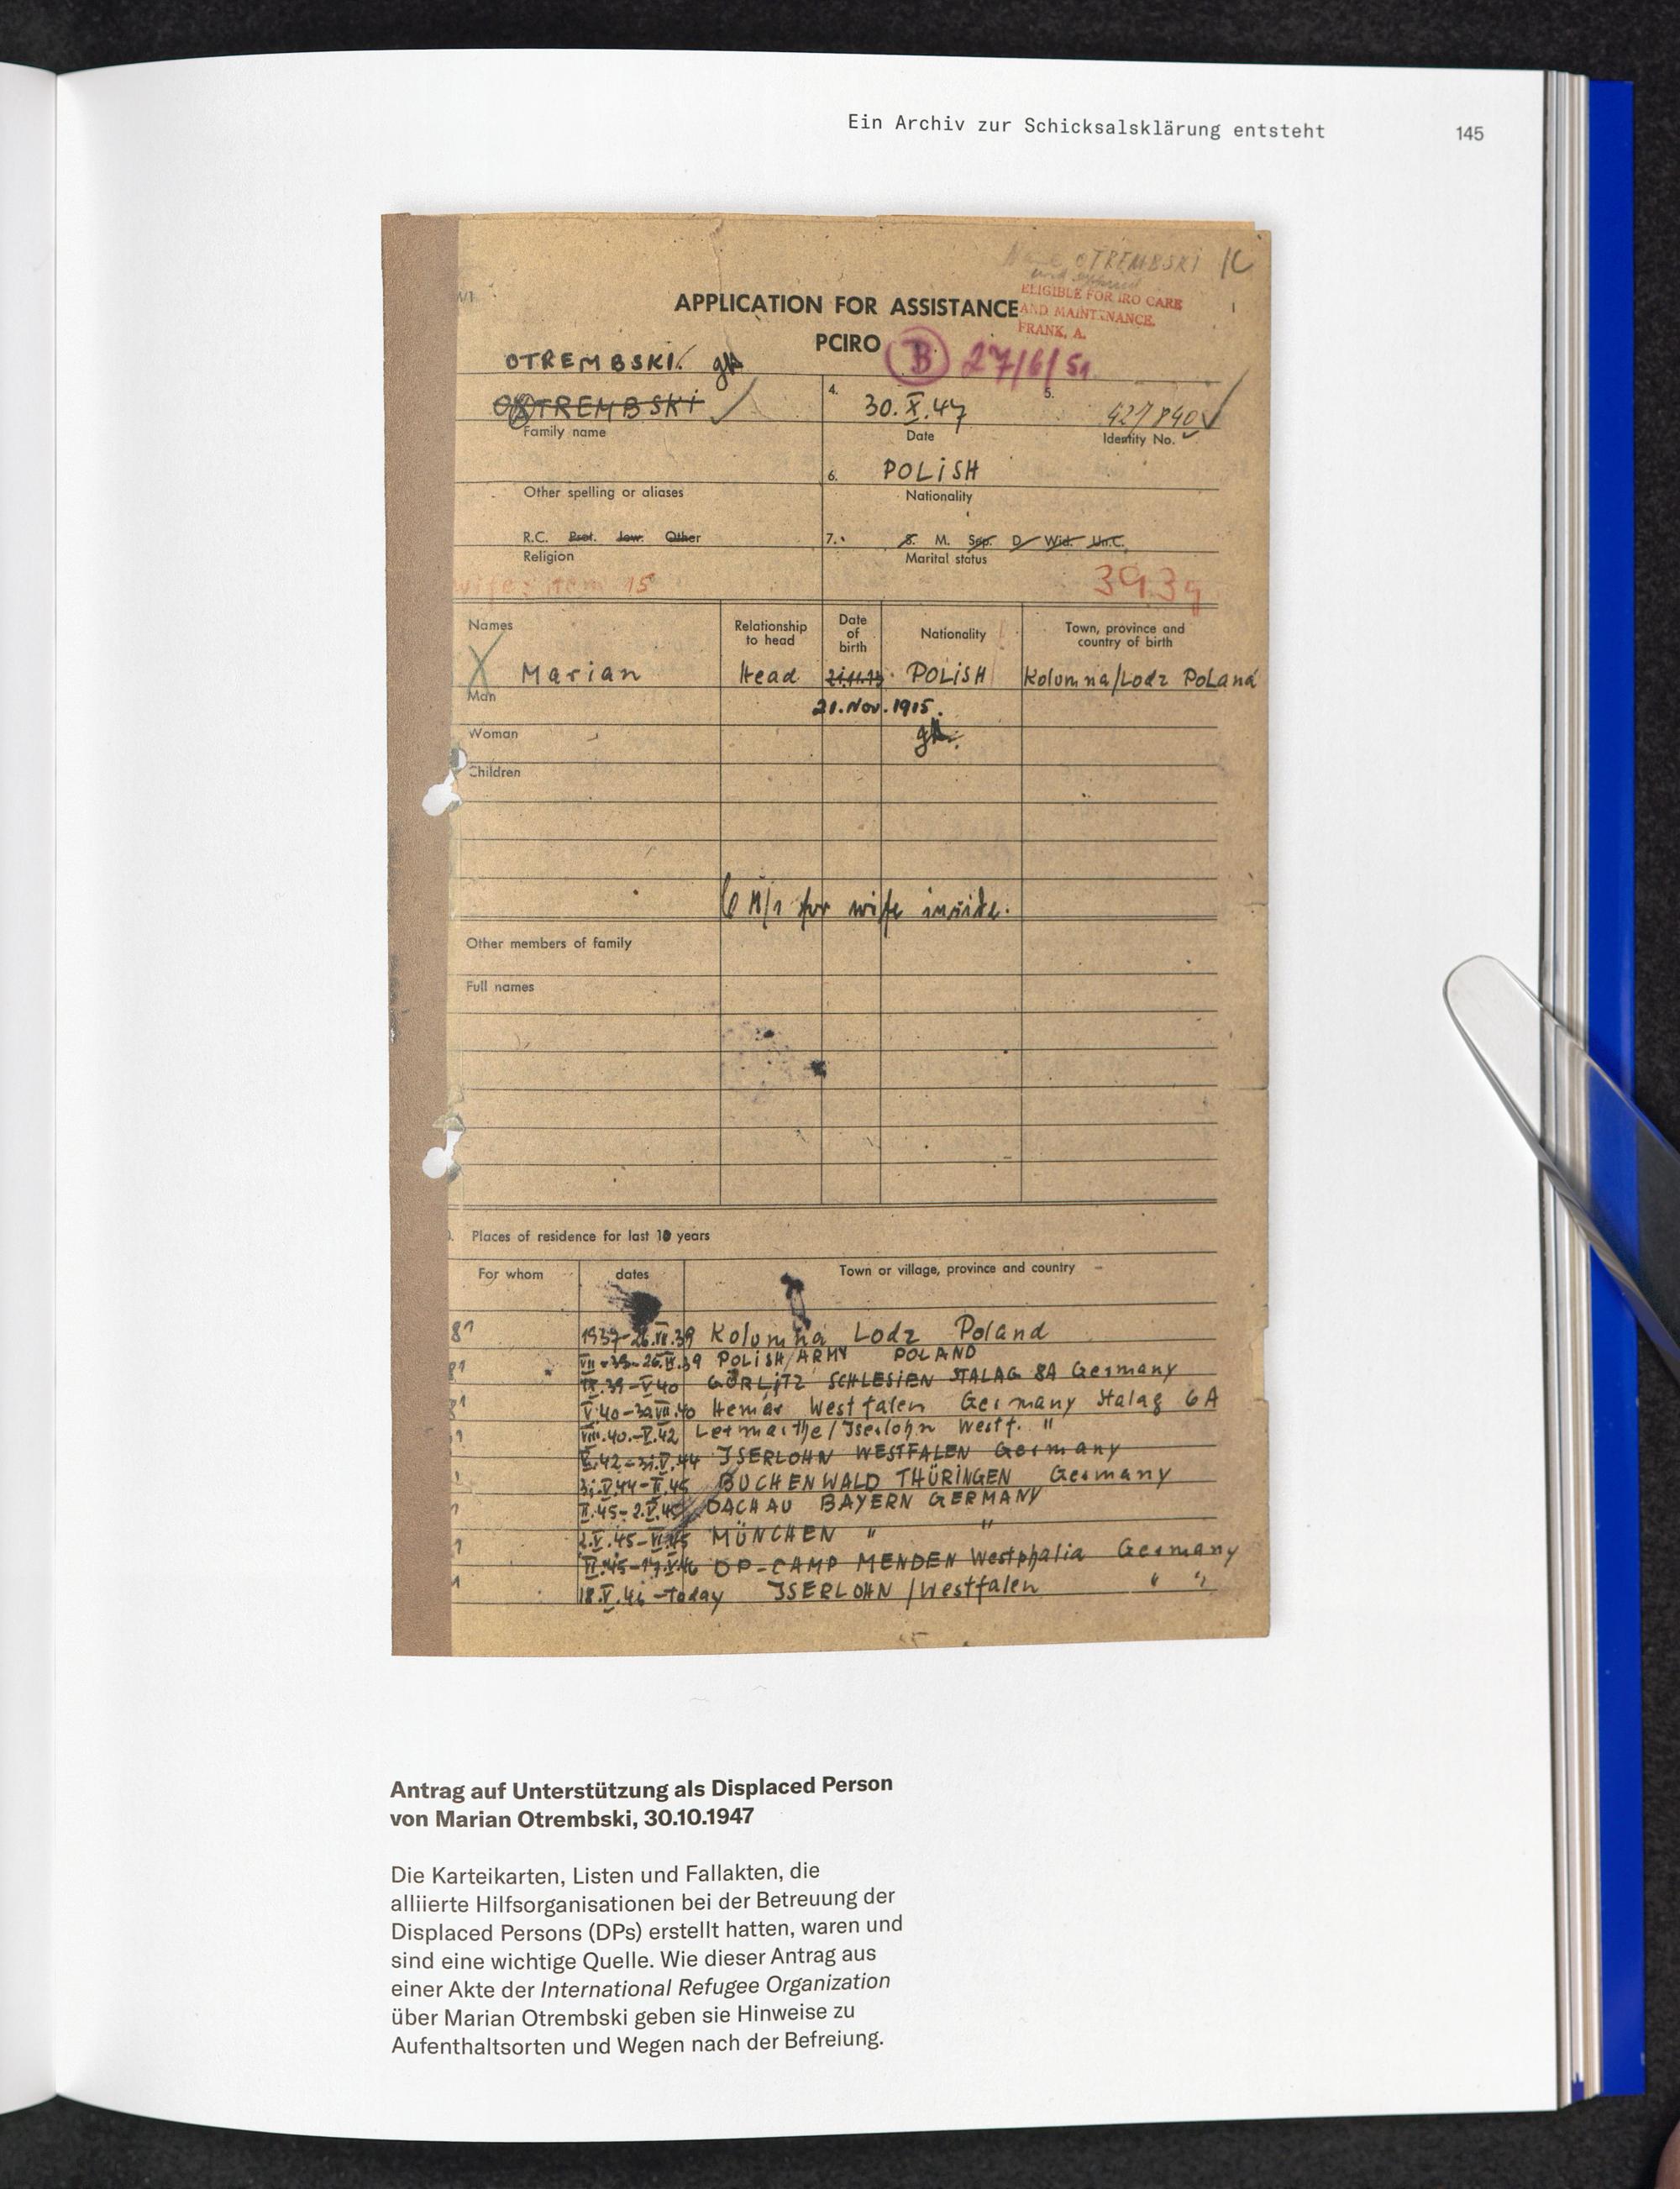 Ein Archiv zur Schicksalsklärung entsteht 145
Name OTREMBSKI IC
ELIGIBLE FOR IRO CARE
AND MAINTENANCE.
FRANK, A.
APPLICATION FOR ASSISTANCE
PCIRO
B 27/6/51.
OTREMBSKI.
OTREMBSKI
Family name
4. 30.X.47
Date
5. 427840
Identity No.
Other spelling or aliases
6. POLiSH
Nationality
R.C. Prot. Jew. Other
Religion
7. S. M. Sep. D Wid. Un.C.
Marital status
wife: item 15
3939
Names Relationship to head Date of birth Nationality Town, province and country of birth
X Marian Head 21.11.15 POLiSH Kolumna/Lodz PoLand
Man
21.Nov.1915.
Woman
Children
for wife inside.
Other members of family
Full names
Places of residence for last 10 years
For whom dates Town or village, province and country
1937-26.VII.39 Kolumna Lodz Poland
VII-39-26.IX.39 POLiSH/ARMY POLAND
IX.39-V.40 GÖRLiTZ SCHLESiEN STALAG 8A Germany
V.40-30.VII.40 Hemer Westfalen Germany Stalag 6A
VIII.40.-V.42 Letmathe/Jserlohn Westf. "
V.42-31.V.44 JSERLOHN WESTFALEN Germany
31.V.44-II.45 BUCHENWALD THÜRINGEN Germany
II.45-2.V.45 DACHAU BAYERN GERMANY
2.V.45-VI.45 MÜNCHEN " "
VI.45-17.V.46 DP-CAMP MENDEN Westphalia Germany
18.V.46-today JSERLOHN/Westfalen " "
Antrag auf Unterstützung als Displaced Person
von Marian Otrembski, 30.10.1947
Die Karteikarten, Listen und Fallakten, die
alliierte Hilfsorganisationen bei der Betreuung der
Displaced Persons (DPs) erstellt hatten, waren und
sind eine wichtige Quelle. Wie dieser Antrag aus
einer Akte der International Refugee Organization
über Marian Otrembski geben sie Hinweise zu
Aufenthaltsorten und Wegen nach der Befreiung.